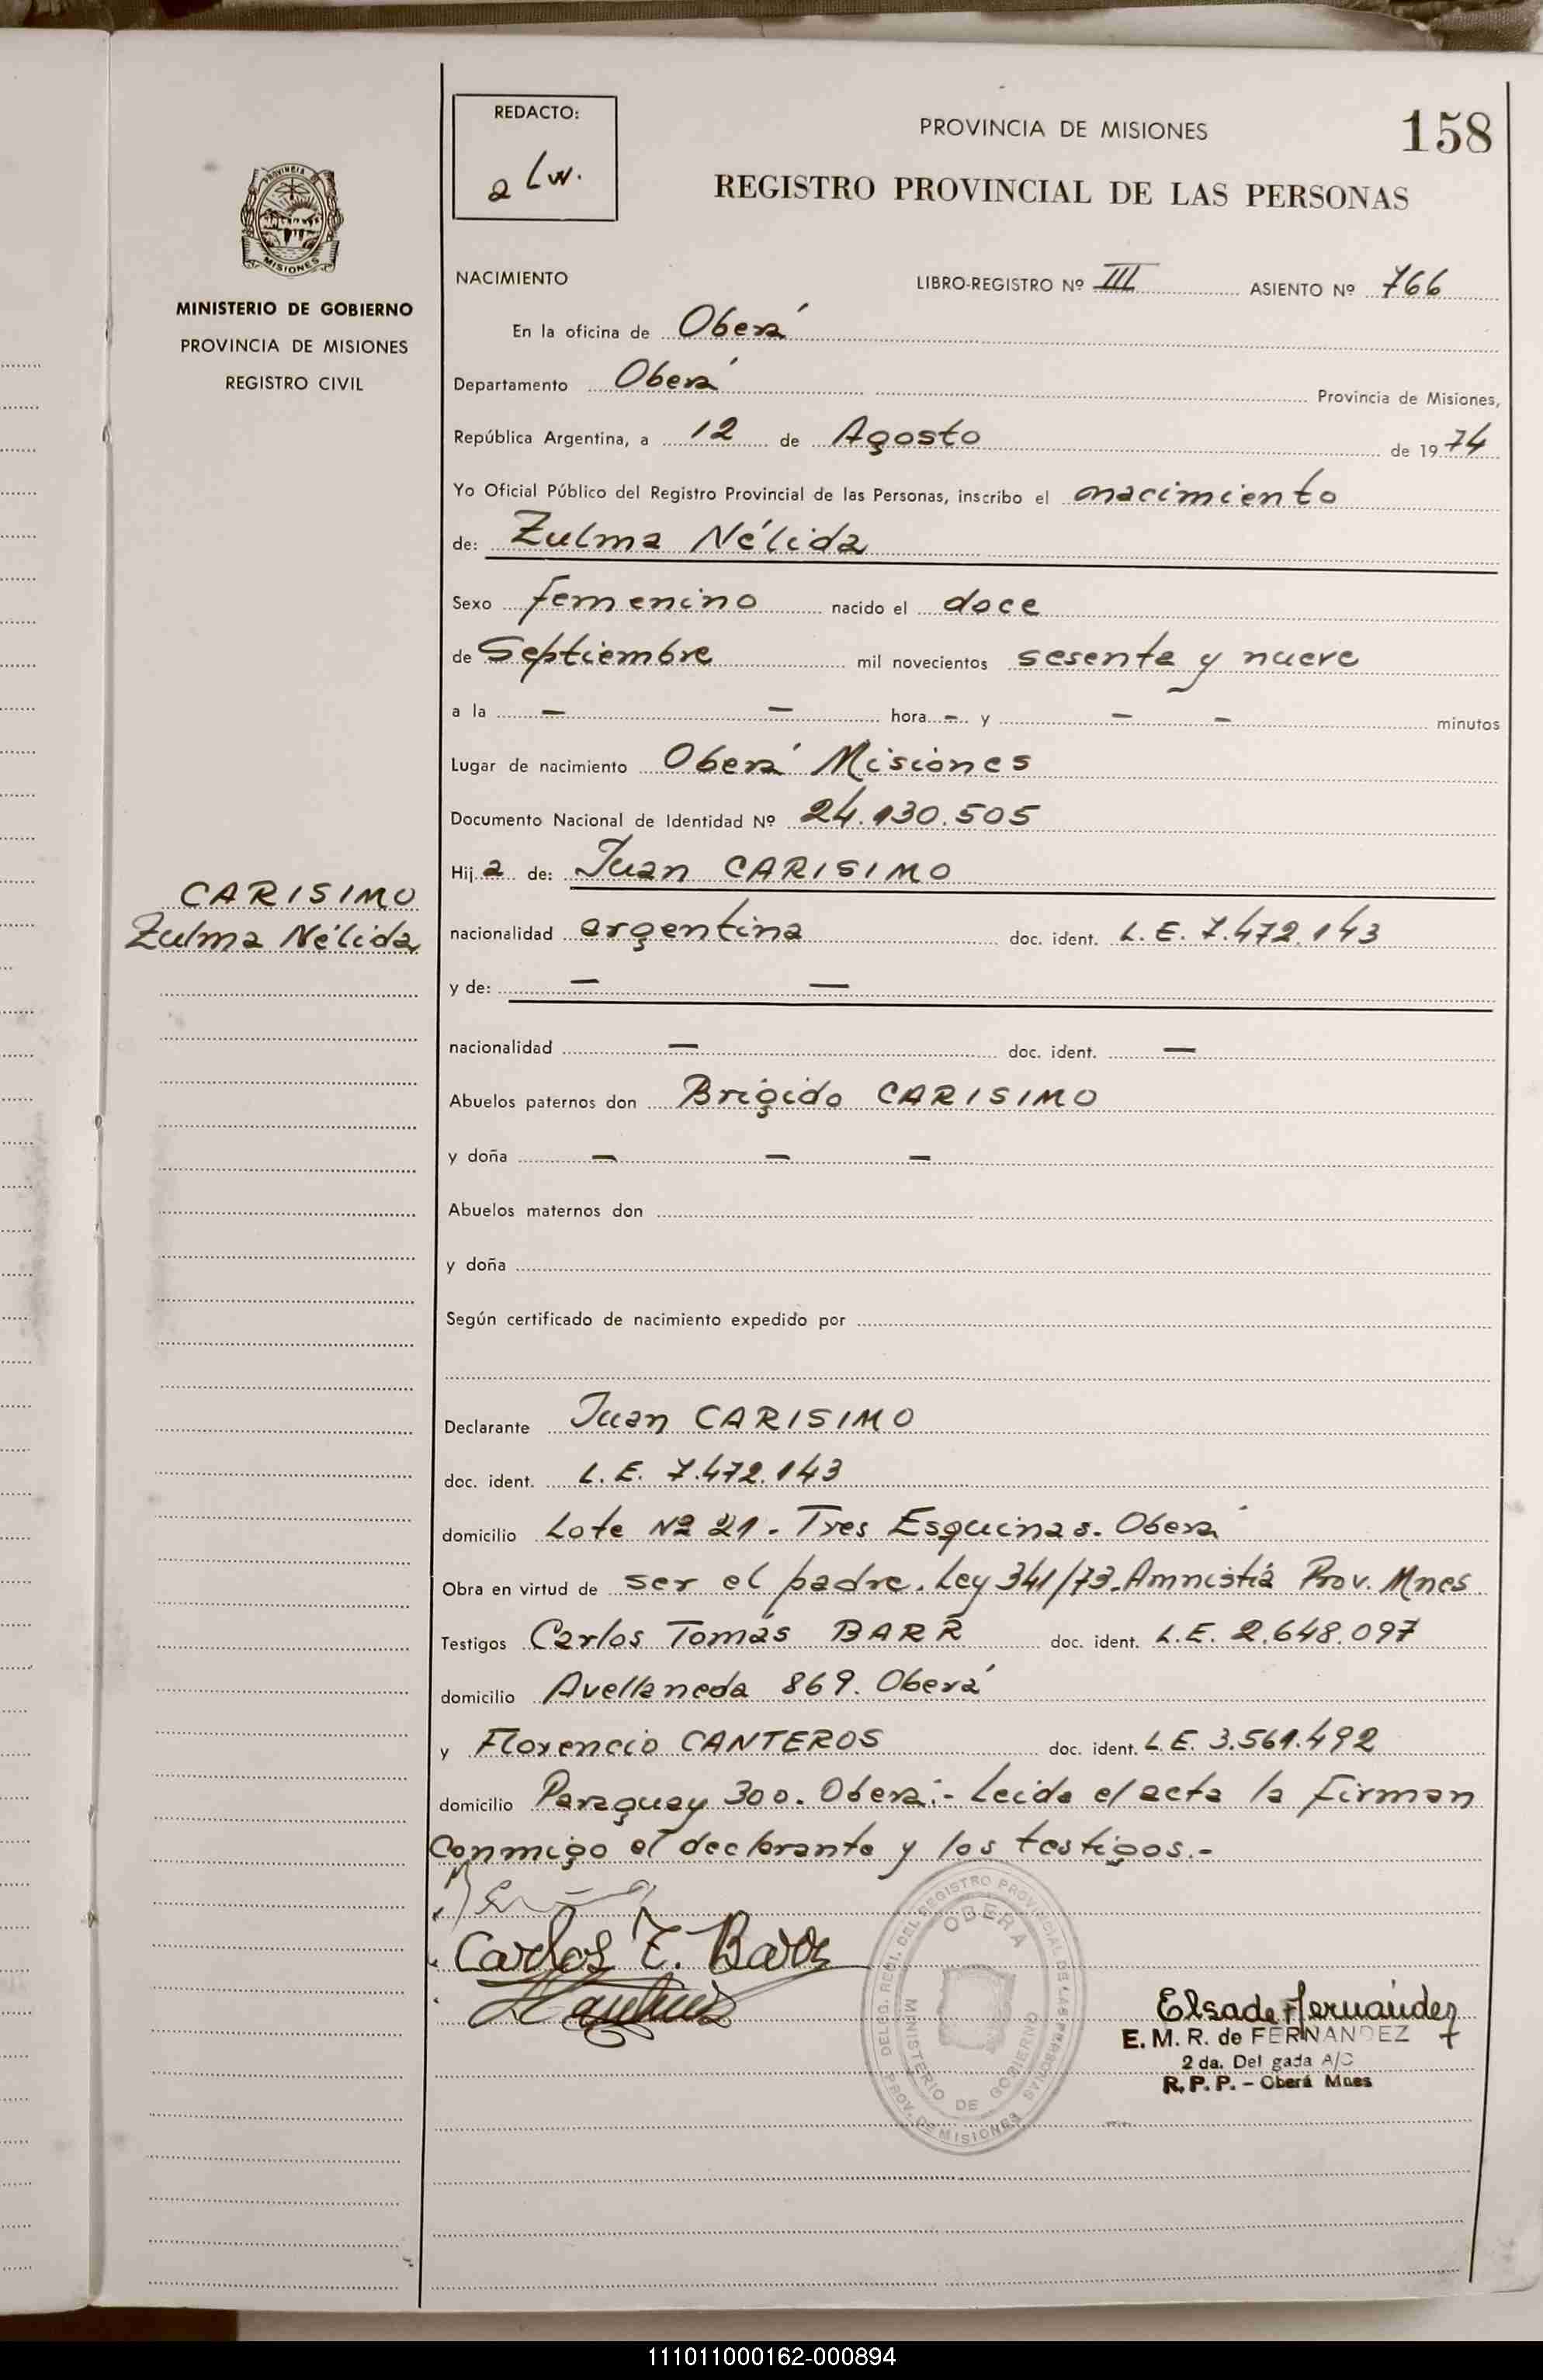 REDACTO:
a Lw.
PROVINCIA DE MISIONES
158
REGISTRO PROVINCIAL DE LAS PERSONAS
PROVINCIA
MISIONES
MINISTERIO DE GOBIERNO
PROVINCIA DE MISIONES
REGISTRO CIVIL
NACIMIENTO LIBRO-REGISTRO Nº III ASIENTO Nº 766
En la oficina de Oberá
Departamento Oberá Provincia de Misiones,
República Argentina, a 12 de Agosto de 1974
Yo Oficial Público del Registro Provincial de las Personas, inscribo el nacimiento
de: Zulma Nélida
Sexo femenino nacido el doce
de Septiembre mil novecientos sesenta y nueve
a la — — hora - y — — minutos
Lugar de nacimiento Oberá Misiones
Documento Nacional de Identidad Nº 24.130.505
Hija de: Juan CARISIMO
CARISIMO
Zulma Nélida
nacionalidad argentina doc. ident. L. E. 7.472.143
y de: — —
nacionalidad — doc. ident. —
Abuelos paternos don Brígido CARISIMO
y doña — — —
Abuelos maternos don
y doña
Según certificado de nacimiento expedido por
Declarante Juan CARISIMO
doc. ident. L. E. 7.472.143
domicilio Lote Nº 21. Tres Esquinas. Oberá
Obra en virtud de ser el padre. Ley 341/73. Amnistía Prov. Mnes
Testigos Carlos Tomás BARR doc. ident. L.E. 2.648.097
domicilio Avellaneda 869. Oberá
y Florencio CANTEROS doc. ident. L.E. 3.561.492
domicilio Paraguay 300. Oberá.- Leida el acta la firman
conmigo el declarante y los testigos.-
Carlos T. Barr
DELEG. REGI. DEL REGISTRO PROVINCIAL DE LAS PERSONAS
OBERA
MINISTERIO DE GOBIERNO
PROV. DE MISIONES
Elsa de Fernandez
E. M. R. de FERNANDEZ
2 da. Delegada A/C
R. P. P. - Oberá Mnes
111011000162-000894